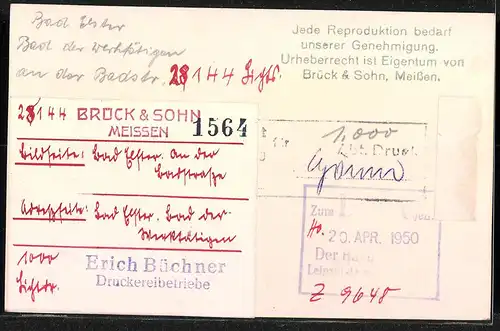 Bad Elster
Bad der Werktätigen
an der Badstr. 28144 Lichtr.
Jede Reproduktion bedarf
unserer Genehmigung.
Urheberrecht ist Eigentum von
Brück & Sohn, Meißen.
28144 BRÜCK & SOHN
MEISSEN 1564
Bildseite: Bad Elster. An der
Badstraße
Adreßseite: Bad Elster. Bad der
Werktätigen
1000
Lichtr.
Erich Büchner
Druckereibetriebe
1,000
Druck
Zum
20. APR. 1950
Der
Z 9648